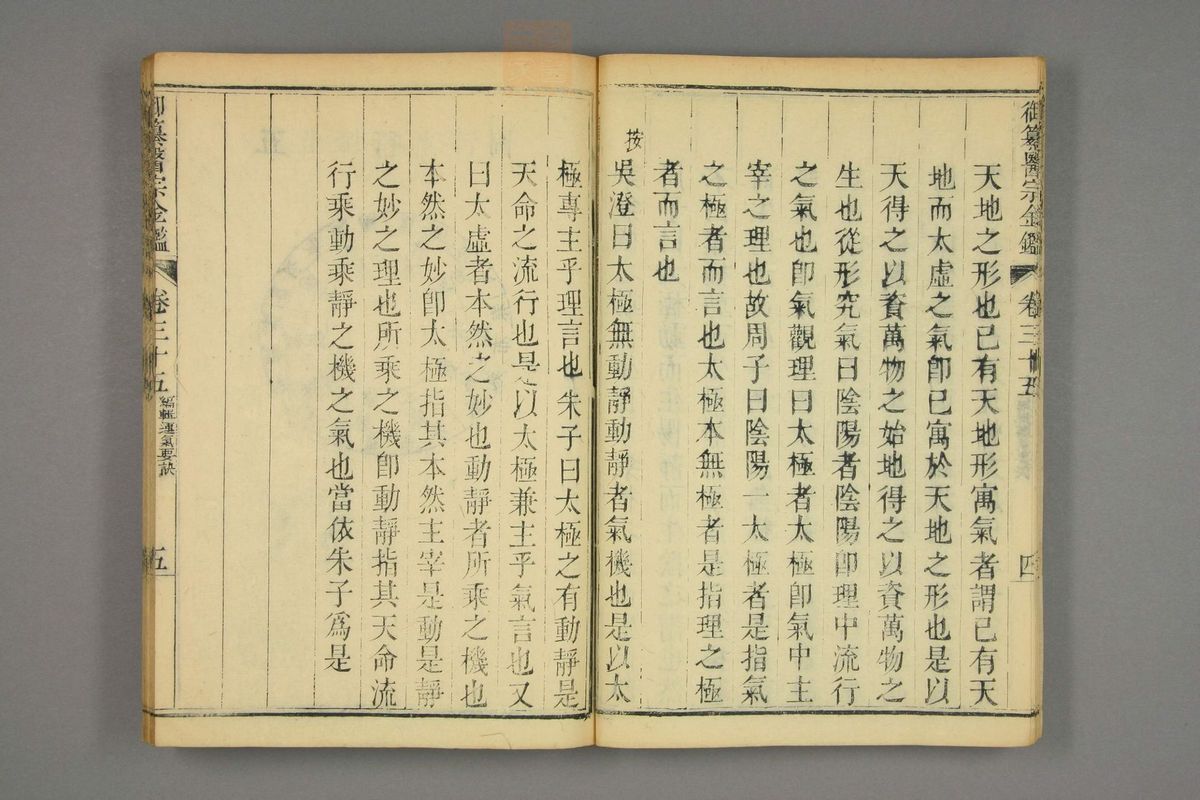 御纂醫宗金鑑 卷三十五 四
天地之形也已有天地形寓氣者謂已有天
地而太虛之氣卽已寓於天地之形也是以
天得之以資萬物之始地得之以資萬物之
生也從形究氣曰陰陽者陰陽卽理中流行
之氣也卽氣觀理曰太極者太極卽氣中主
宰之理也故周子曰陰陽一太極者是指氣
之極者而言也太極本無極者是指理之極
者而言也
按吳澄曰太極無動靜動靜者氣機也是以太
極專主乎理言也朱子曰太極之有動靜是
天命之流行也是以太極兼主乎氣言也又
曰太虛者本然之妙也動靜者所乘之機也
本然之妙卽太極指其本然主宰是動是靜
之妙之理也所乘之機卽動靜指其天命流
行乘動乘靜之機之氣也當依朱子爲是
御纂醫宗金鑑 卷三十五 編輯運氣要訣 五